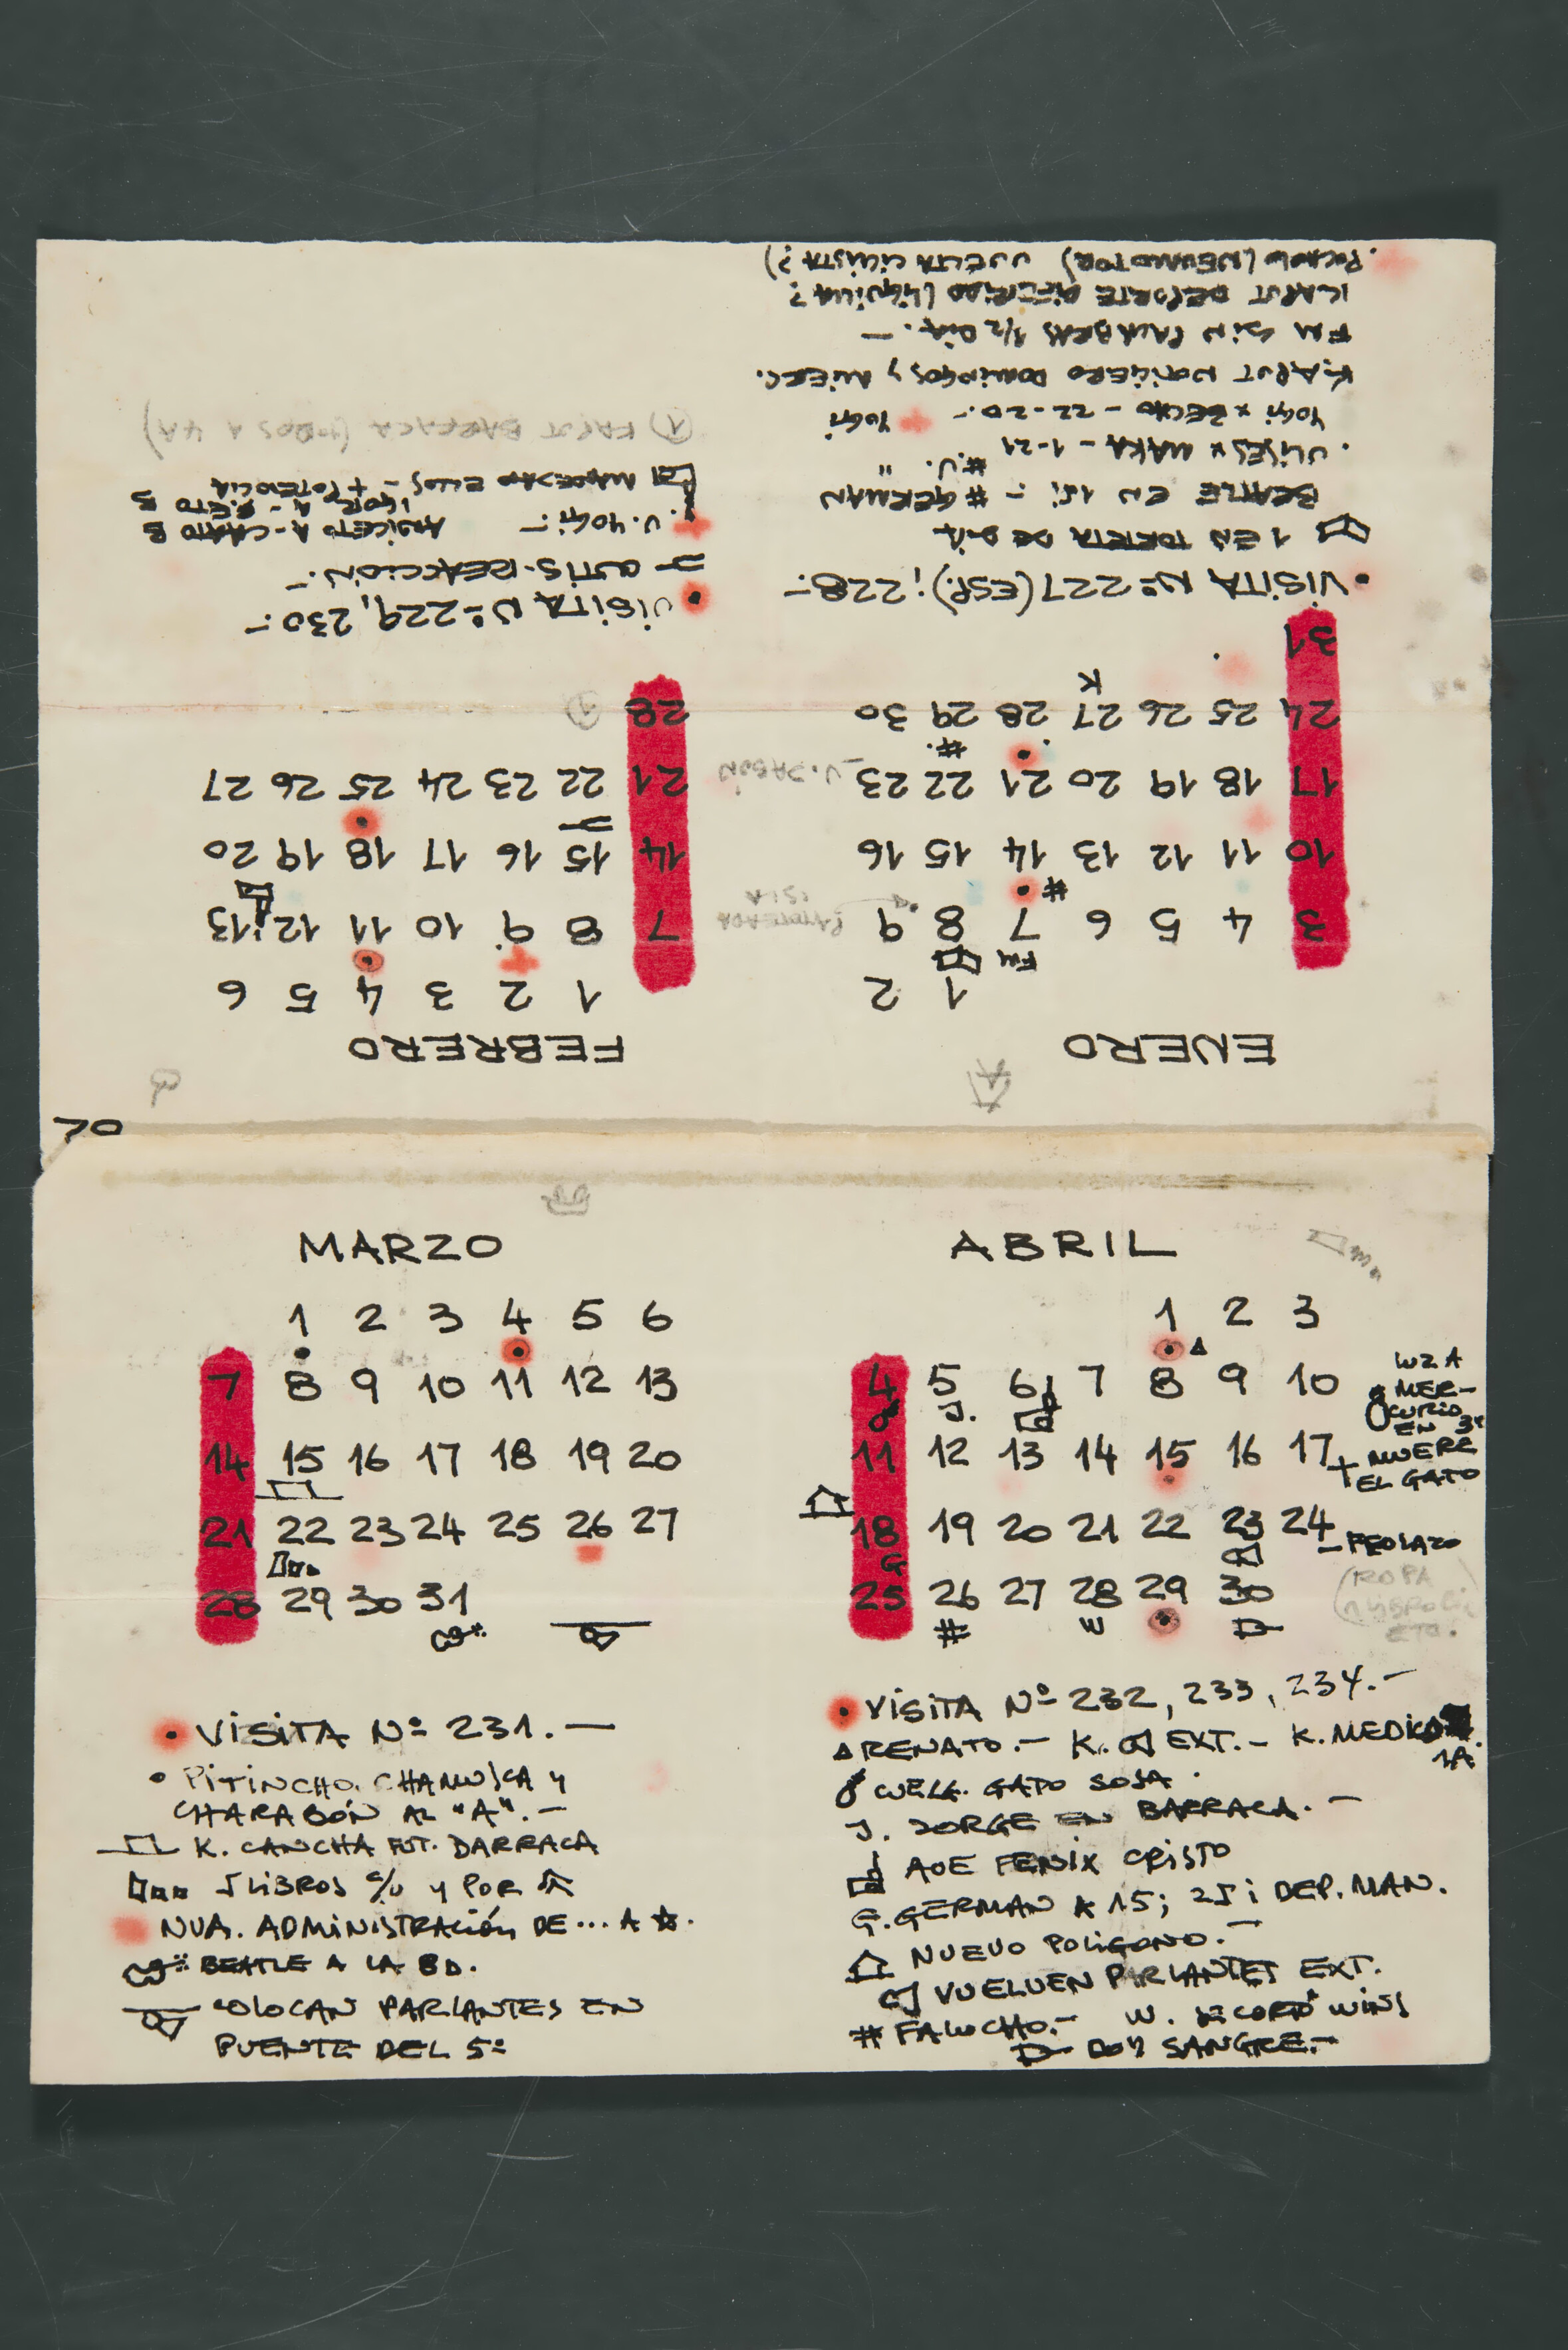 ENERO
1 2
FM
3 4 5 6 7 8 9
#
10 11 12 13 14 15 16
17 18 19 20 21 22 23
#.
24 25 26 27 28 29 30
K
31
• VISITA Nº 227 (ESP.); 228.-
1 EN TORRETA DE
BEATLE EN 15i - # GERMAN
ULISES x MAKA - 1-21 #.J. "
YOGI x BECHO - 22-20.- YOGI
KAPUT DOMINGOS y MIERC.
FM SIN PALABRAS 1/2 DIA. -
KAPUT DEPORTE DIFERIDO (LIGUILLA?
VUELTA CICLISTA?)
FEBRERO
1 2 3 4 5 6
7 8 9 10 11 12 13
14 15 16 17 18 19 20
21 22 23 24 25 26 27
28 1
• VISITA Nº 229, 230.-
CUTIS-REACCION.-
V. YOGI.- ANICETO A - CHATO B
IGOR A - BETO B
ELLOS - + POTENCIA
1) KAPUT BARRACA (TODOS A 4A)
70
MARZO
1 2 3 4 5 6
7 8 9 10 11 12 13
14 15 16 17 18 19 20
21 22 23 24 25 26 27
28 29 30 31
• VISITA Nº 231. —
• PITINCHO, CHAMUSCA Y
CHARABÓN AL "A". —
K. CANCHA FUT. BARRACA
5 LIBROS C/U Y POR
NVA. ADMINISTRACIÓN DE... A
BEATLE A LA BD.
COLOCAN PARLANTES EN
PUENTE DEL 5º
ABRIL
1 2 3
4 5 6 7 8 9 10
J.
LUZ A
MER-
CURIO
EN 3º
11 12 13 14 15 16 17
MUERE
EL GATO
18 19 20 21 22 23 24
G
25 26 27 28 29 30
# W
(ROPA
• VISITA Nº 232, 233, 234.—
RENATO.— K. EXT.— K. MEDICO
1A.
CUELG. GATO SOSA.
J. JORGE EN BARRACA. —
AOE FENIX CRISTO
G. GERMAN A 15; 25i DEP. MAN.
NUEVO POLIGONO.—
VUELVEN PARLANTES EXT.
# FALUCHO.— W. SE CORTÓ WINS
DOY SANGRE.—